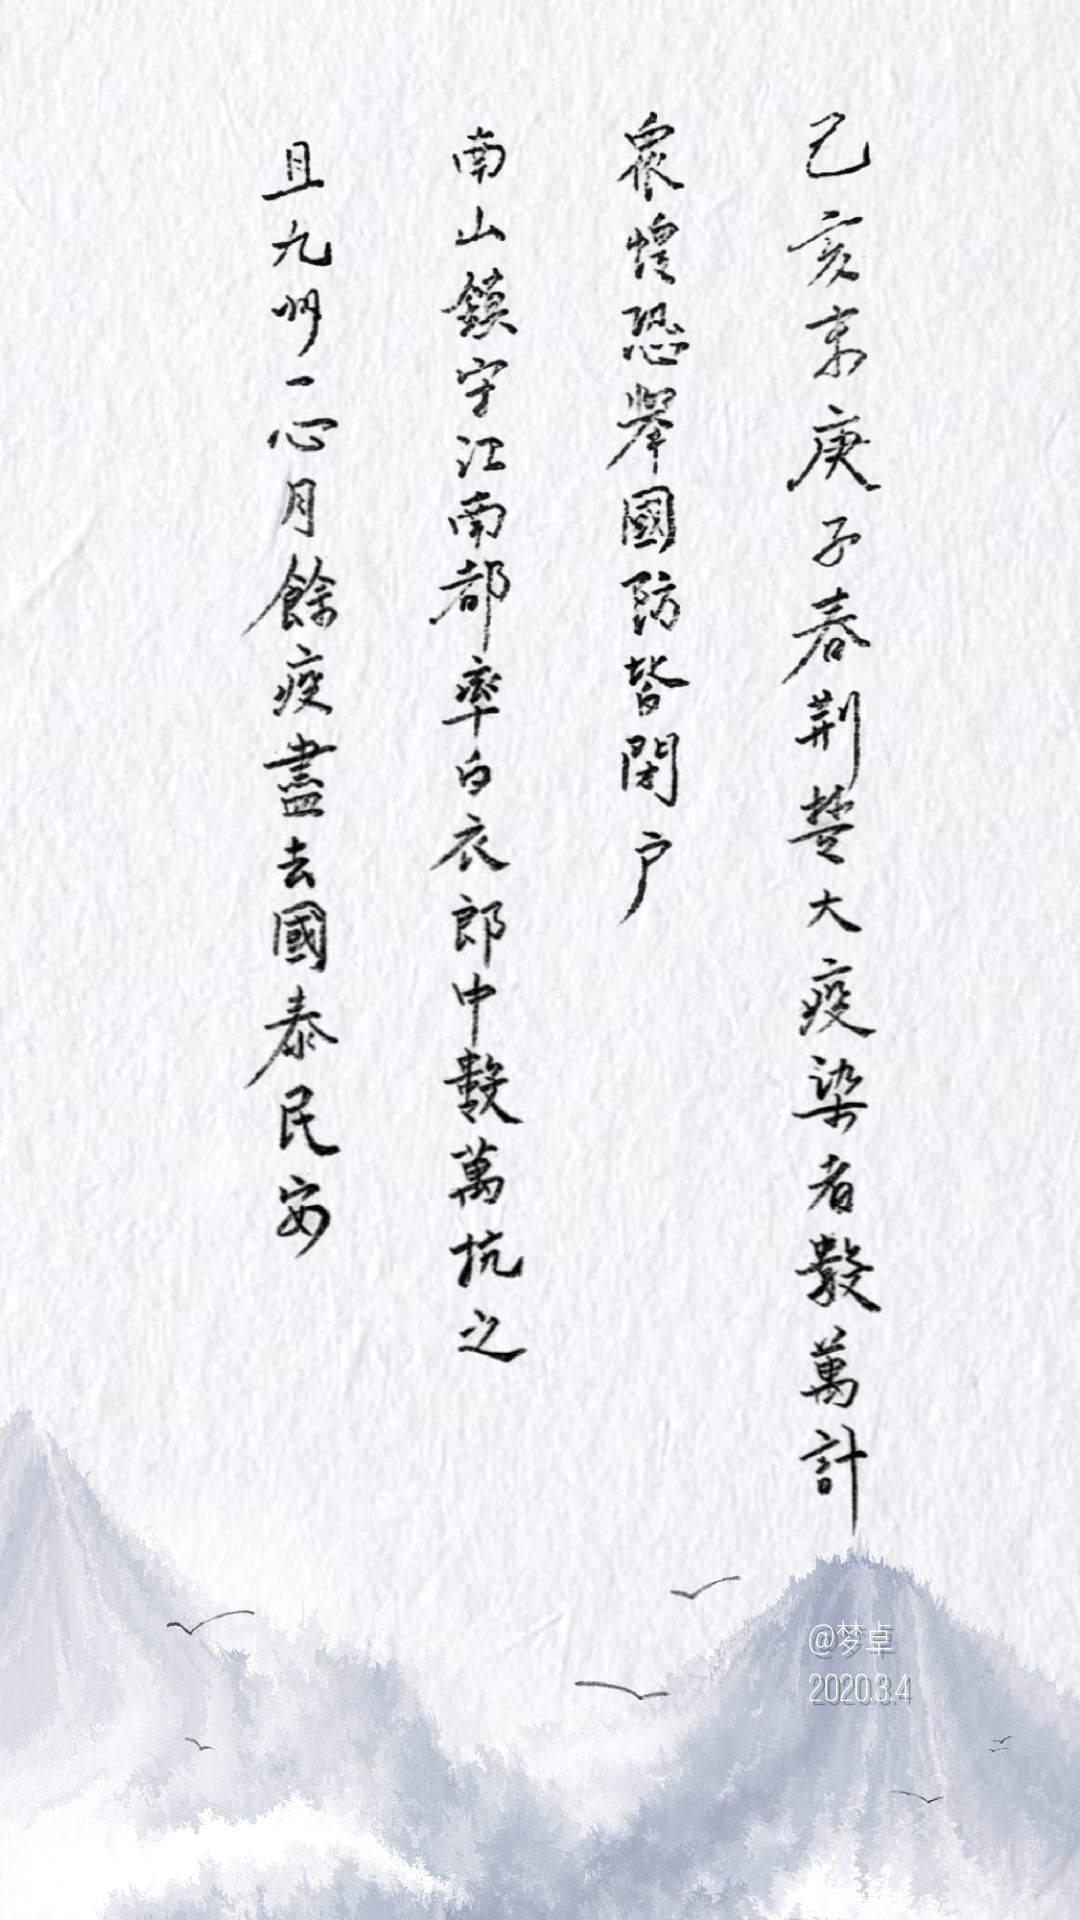 己亥末庚子春荆楚大疫染者數萬計
衆惶恐舉國防皆閉户
南山鎮守江南都率白衣郎中數萬抗之
且九州一心月餘疫盡去國泰民安
@梦卓
2020.3.4